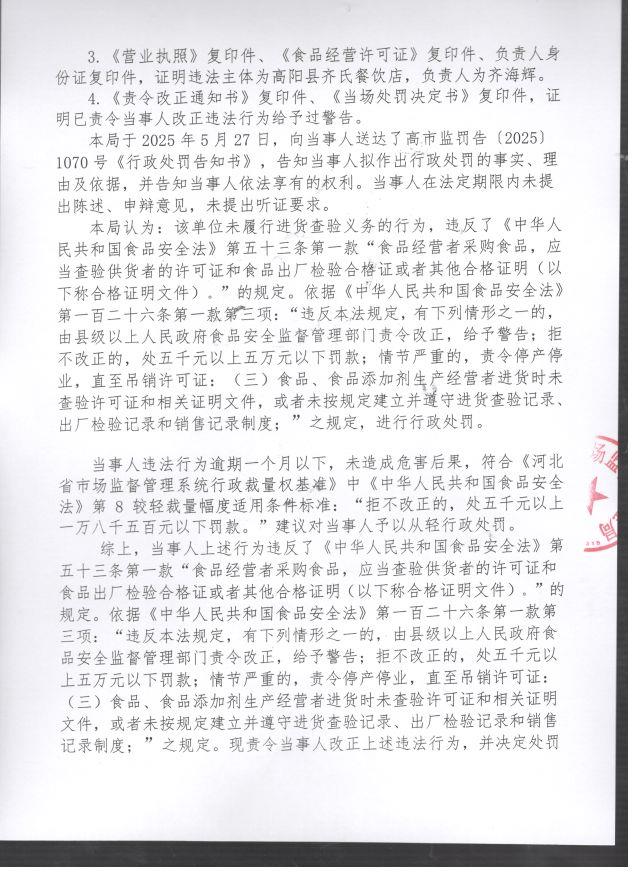 3.《营业执照》复印件、《食品经营许可证》复印件、负责人身
份证复印件，证明违法主体为高阳县齐氏餐饮店，负责人为齐海辉。
4.《责令改正通知书》复印件、《当场处罚决定书》复印件，证
明已责令当事人改正违法行为给予过警告。
本局于 2025 年 5 月 27 日，向当事人送达了高市监罚告〔2025〕
1070 号《行政处罚告知书》，告知当事人拟作出行政处罚的事实、理
由及依据，并告知当事人依法享有的权利。当事人在法定期限内未提
出陈述、申辩意见，未提出听证要求。
本局认为：该单位未履行进货查验义务的行为，违反了《中华人
民共和国食品安全法》第五十三条第一款“食品经营者采购食品，应
当查验供货者的许可证和食品出厂检验合格证或者其他合格证明（以
下称合格证明文件）。”的规定。依据《中华人民共和国食品安全法》
第一百二十六条第一款第三项：“违反本法规定，有下列情形之一的，
由县级以上人民政府食品安全监督管理部门责令改正，给予警告；拒
不改正的，处五千元以上五万元以下罚款；情节严重的，责令停产停
业，直至吊销许可证：（三）食品、食品添加剂生产经营者进货时未
查验许可证和相关证明文件，或者未按规定建立并遵守进货查验记录、
出厂检验记录和销售记录制度；”之规定，进行行政处罚。
当事人违法行为逾期一个月以下，未造成危害后果，符合《河北
省市场监督管理系统行政裁量权基准》中《中华人民共和国食品安全
法》第 8 较轻裁量幅度适用条件标准：“拒不改正的，处五千元以上
一万八千五百元以下罚款。”建议对当事人予以从轻行政处罚。
综上，当事人上述行为违反了《中华人民共和国食品安全法》第
五十三条第一款“食品经营者采购食品，应当查验供货者的许可证和
食品出厂检验合格证或者其他合格证明（以下称合格证明文件）。”的
规定。依据《中华人民共和国食品安全法》第一百二十六条第一款第
三项：“违反本法规定，有下列情形之一的，由县级以上人民政府食
品安全监督管理部门责令改正，给予警告；拒不改正的，处五千元以
上五万元以下罚款；情节严重的，责令停产停业，直至吊销许可证：
（三）食品、食品添加剂生产经营者进货时未查验许可证和相关证明
文件，或者未按规定建立并遵守进货查验记录、出厂检验记录和销售
记录制度；”之规定。现责令当事人改正上述违法行为，并决定处罚
场监
局